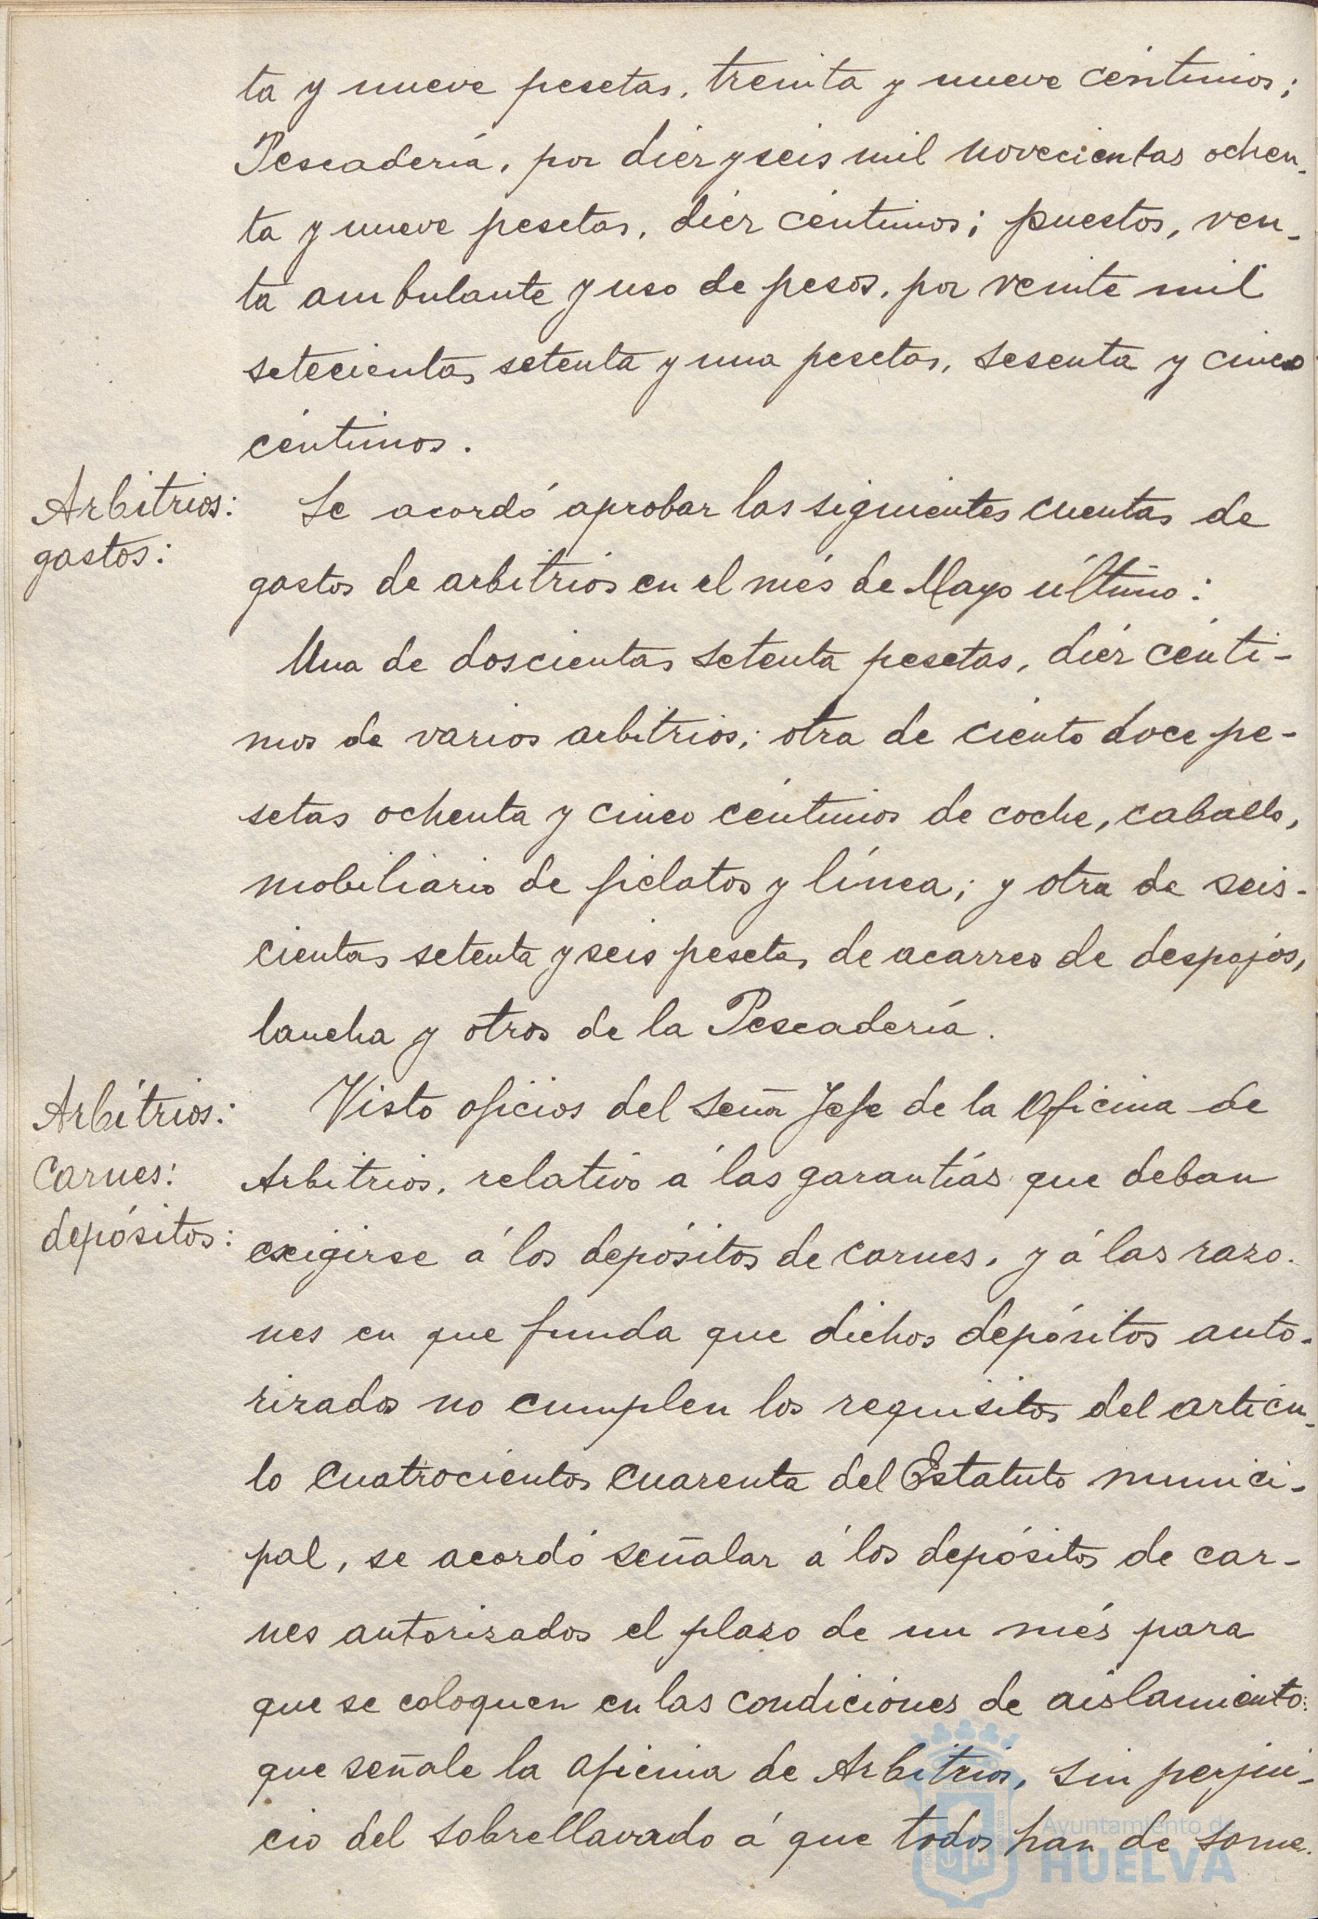 ta y nueve pesetas, treinta y nueve céntimos;
Pescadería, por diez y seis mil novecientas ochen-
ta y nueve pesetas, diez céntimos; puestos, ven-
ta ambulante y uso de pesos, por veinte mil
setecientas setenta y una pesetas, sesenta y cinco
céntimos.
Arbitrios:
gastos:
Se acordó aprobar las siguientes cuentas de
gastos de arbitrios en el més de Mayo último:
Una de doscientas setenta pesetas, diez cénti-
mos de varios arbitrios; otra de ciento doce pe-
setas ochenta y cinco céntimos de coche, caballo,
mobiliario de fielatos y línea; y otra de seis-
cientas setenta y seis pesetas de acarreo de despojos,
lancha y otros de la Pescadería.
Arbitrios:
Carnes:
depósitos:
Visto oficios del Señor Jefe de la Oficina de
Arbitrios, relativo á las garantías que deban
exigirse á los depósitos de carnes, y á las razo-
nes en que funda que dichos depósitos auto-
rizados no cumplen los requisitos del artícu-
lo cuatrocientos cuarenta del Estatuto munici-
pal, se acordó señalar á los depósitos de car-
nes autorizados el plazo de un més para
que se coloquen en las condiciones de aislamiento
que señale la oficina de Arbitrios, sin perjui-
cio del sobrellavado á que todos han de some-
Ayuntamiento de
HUELVA